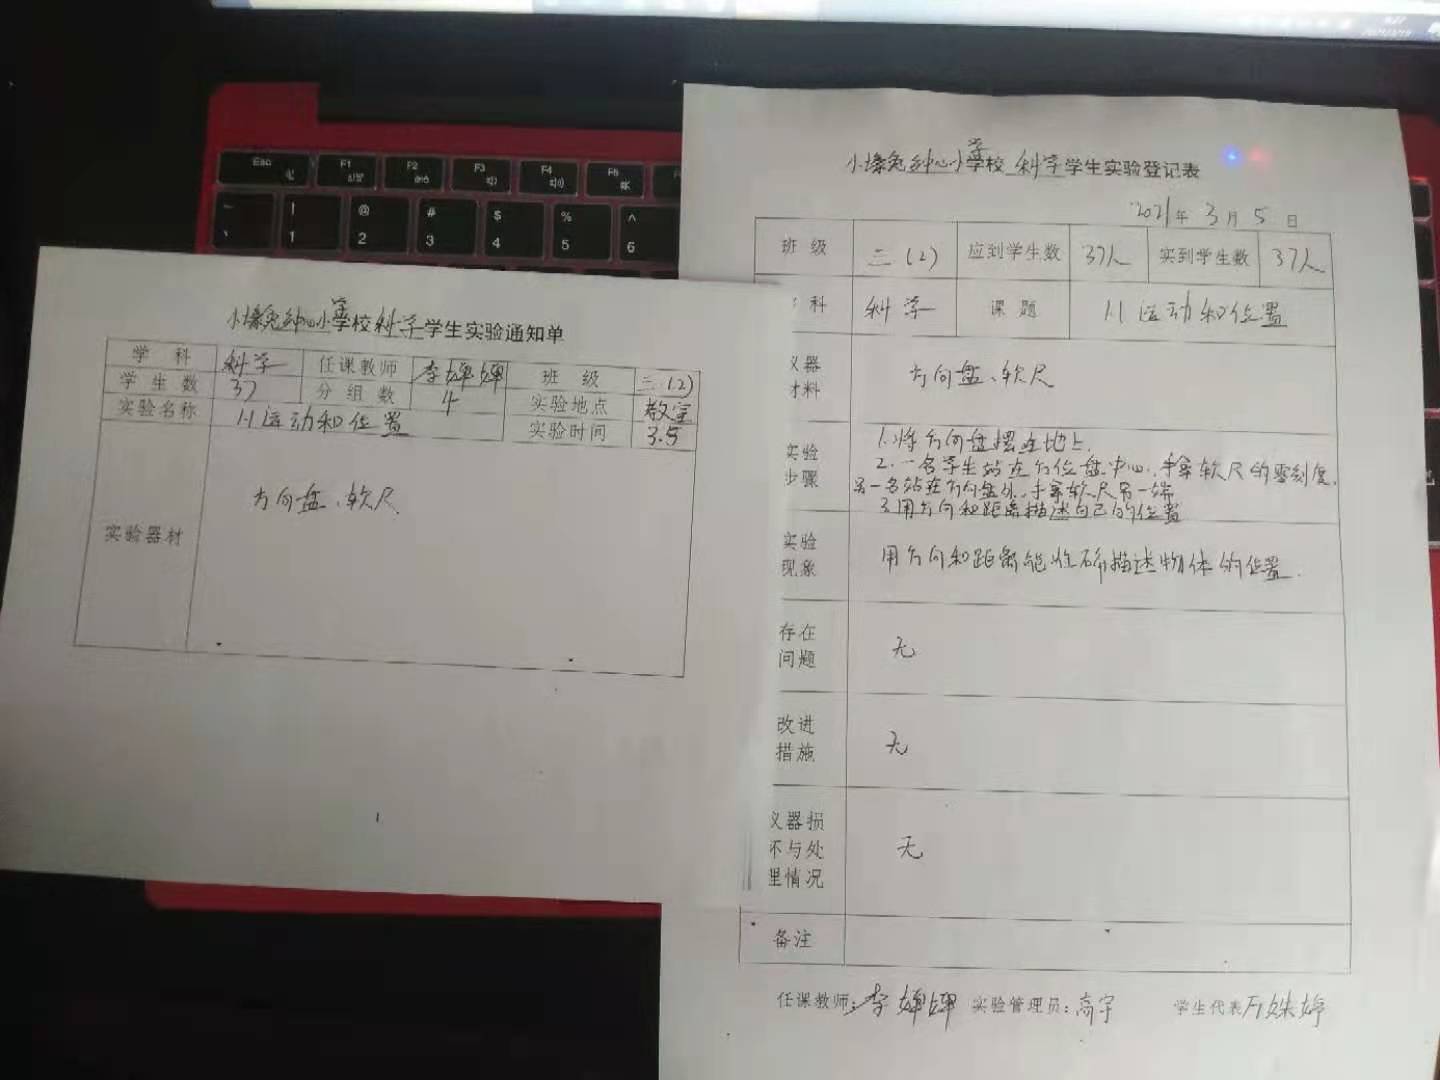 Esc
F1
F2
F3
F4
F5
~
!
1
@
2
#
3
$
4
%
5
^
6
学校科学学生实验通知单
学 科 科学 任课教师 李婵婵 班 级 三(2)
学生数 37 分组数 4 实验地点 教室
实验名称 1.1运动和位置 实验时间 3.5
实验器材 方向盘、软尺.
学校 科学学生实验登记表
2021年 3月 5日
班 级 三(2) 应到学生数 37人 实到学生数 37人
科 科学 课 题 1.1 运动和位置
仪器
材料
方向盘、软尺
实验
步骤
1.将方向盘摆在地上.
2.一名学生站在方位盘中心,手拿软尺的零刻度,
另一名站在方向盘外,手拿软尺另一端
3.用方向和距离描述自己的位置
实验
现象
用方向和距离能准确描述物体的位置.
存在
问题
无
改进
措施
无
仪器损
坏与处
理情况
无
备注
任课教师:李婵婵 实验管理员:高宇 学生代表